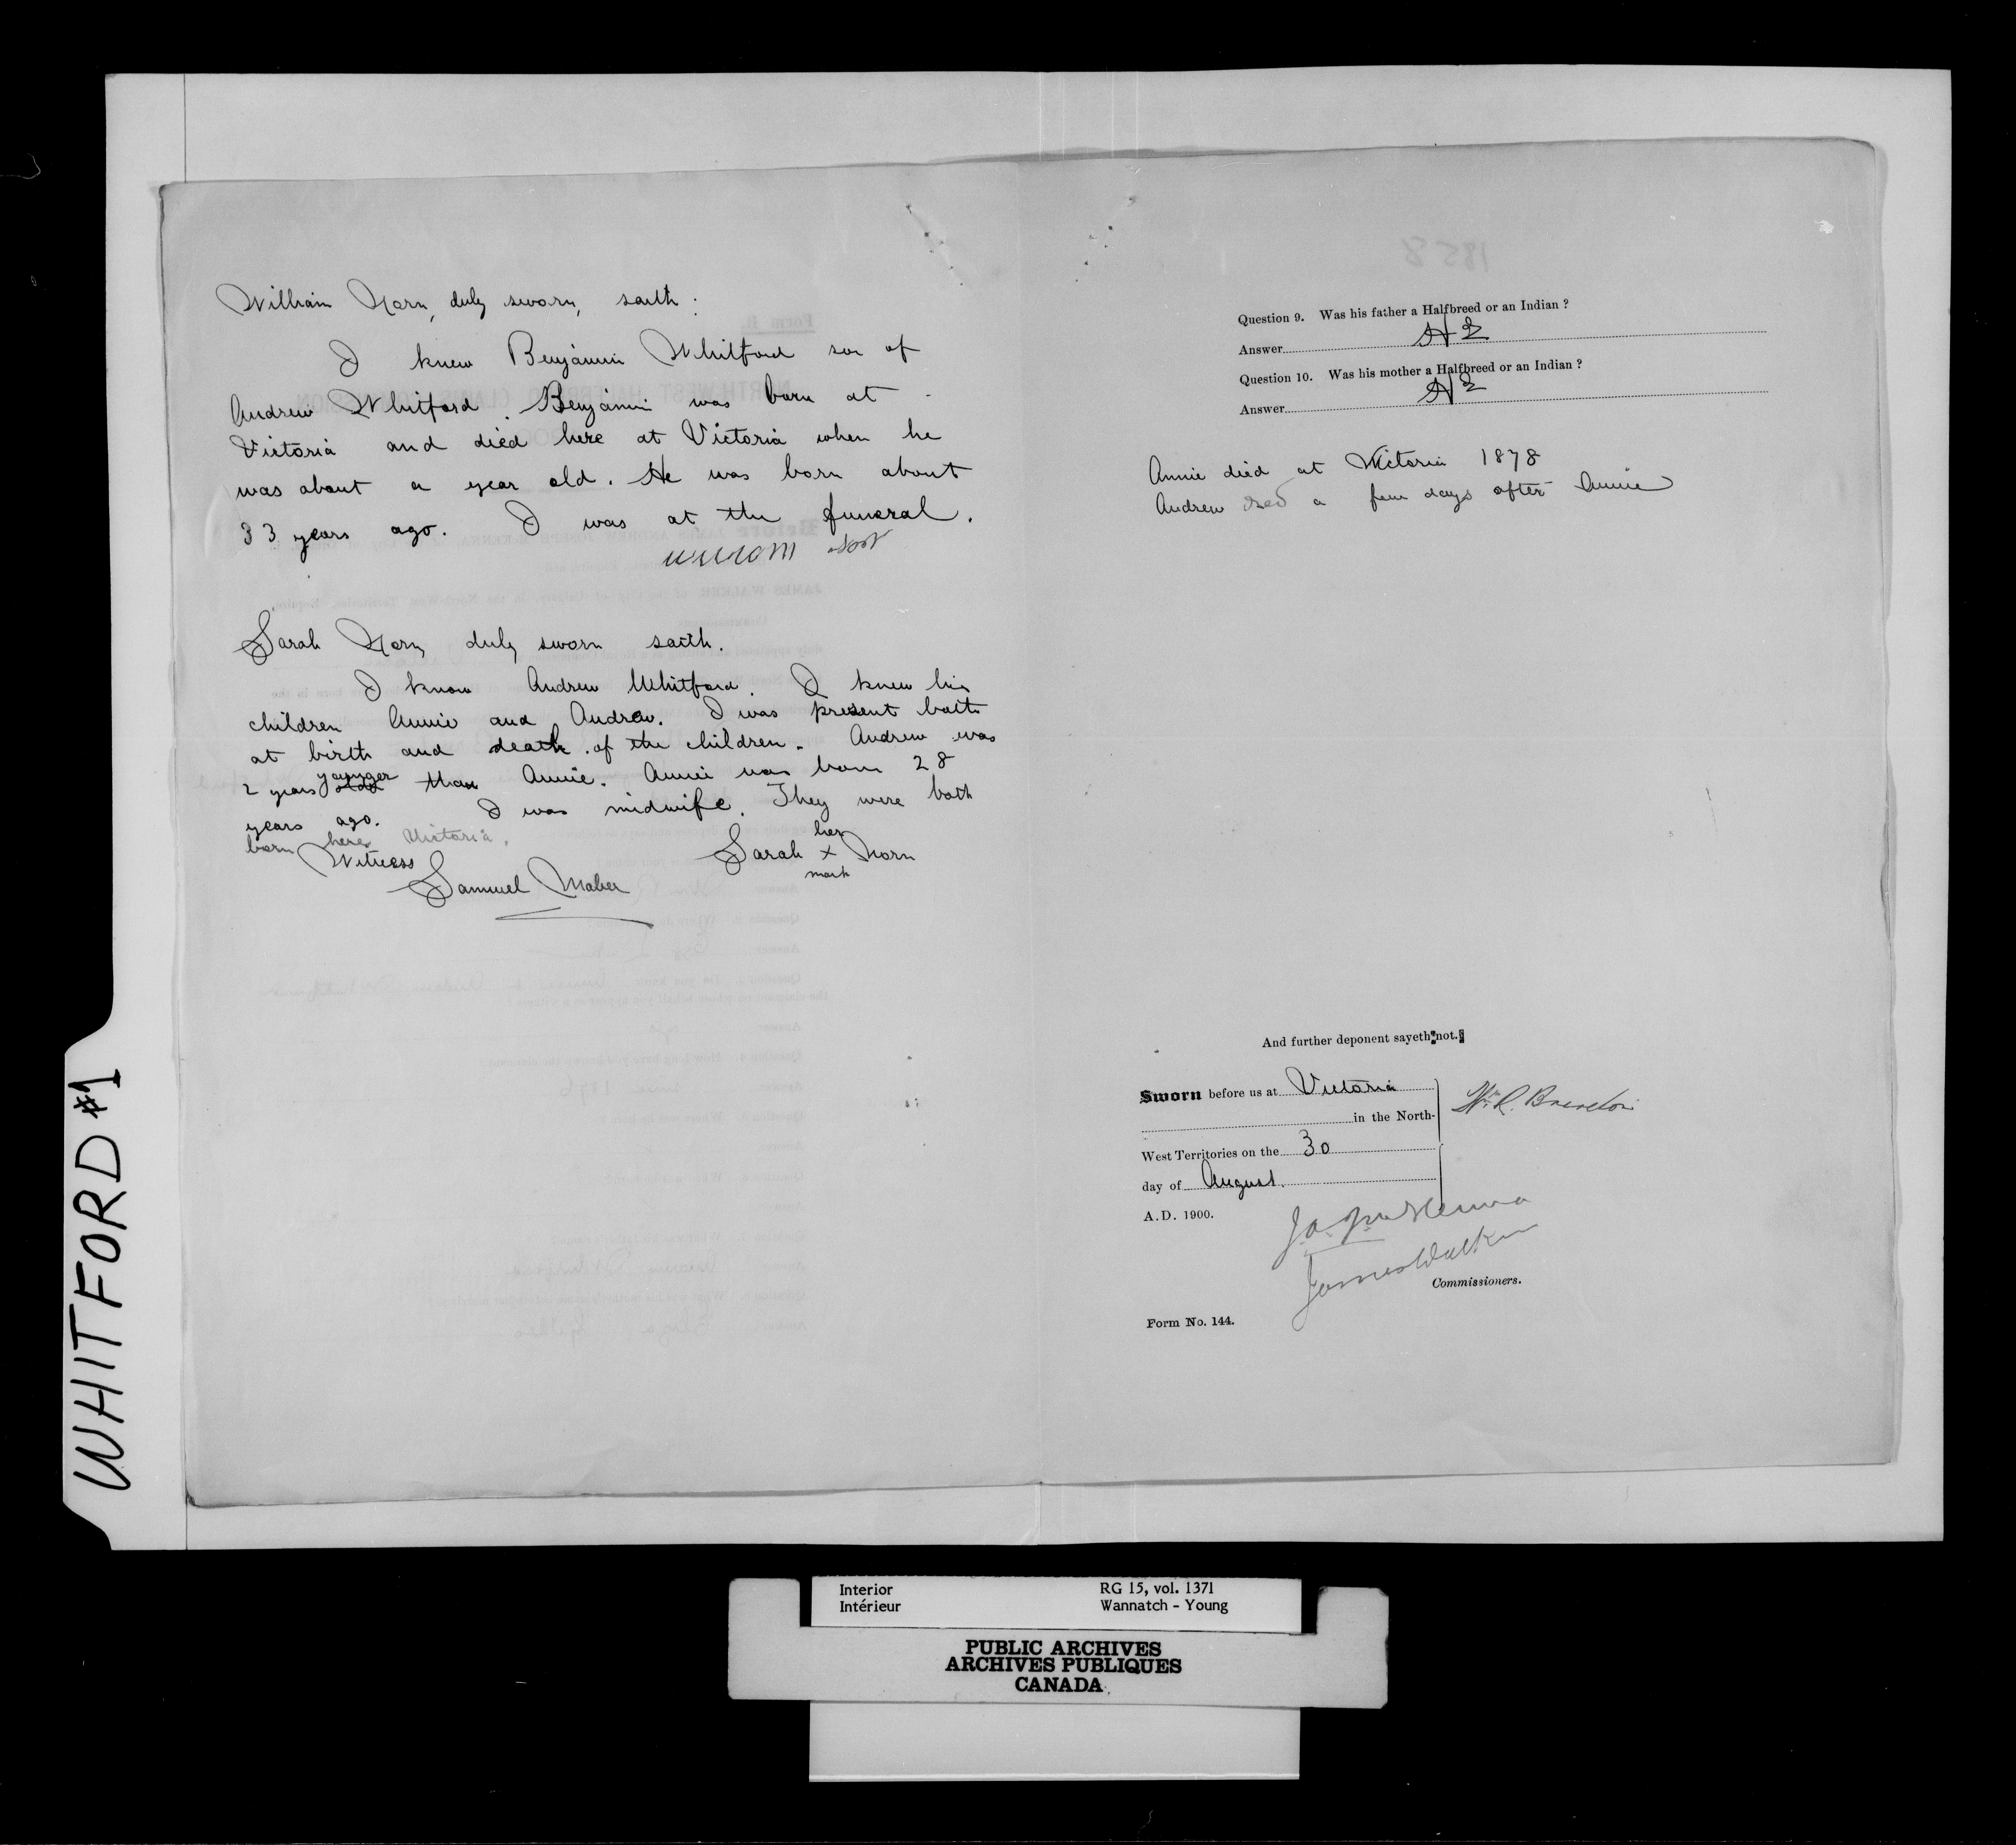 William Norn, duly sworn, saith:
I knew Benjamin Whitford son of
Andrew Whitford. Benjamin was born at
Victoria and died here at Victoria when he
was about a year old. He was born about
33 years ago. I was at the funeral.
William
Sarah Norn duly sworn saith.
I know Andrew Whitford. I knew his
children Annie and Andrew. I was present both
at birth and death of the children. Andrew was
2 years younger than Annie. Annie was born 28
years ago. I was midwife. They were both
born here Victoria.
Witness
Samuel Maber
her
Sarah x Norn
mark
Question 9. Was his father a Halfbreed or an Indian ?
Answer
Question 10. Was his mother a Halfbreed or an Indian ?
Answer
Annie died at Victoria 1878
Andrew died a few days after Annie
And further deponent sayeth not.
Sworn before us at Victoria
in the North-
West Territories on the 30
day of August
A.D. 1900.
Wm R. Brereton
J.A. McKenna
James Walker
Commissioners.
Form No. 144.
WHITFORD #1
Interior RG 15, vol. 1371
Intérieur Wannatch - Young
PUBLIC ARCHIVES
ARCHIVES PUBLIQUES
CANADA